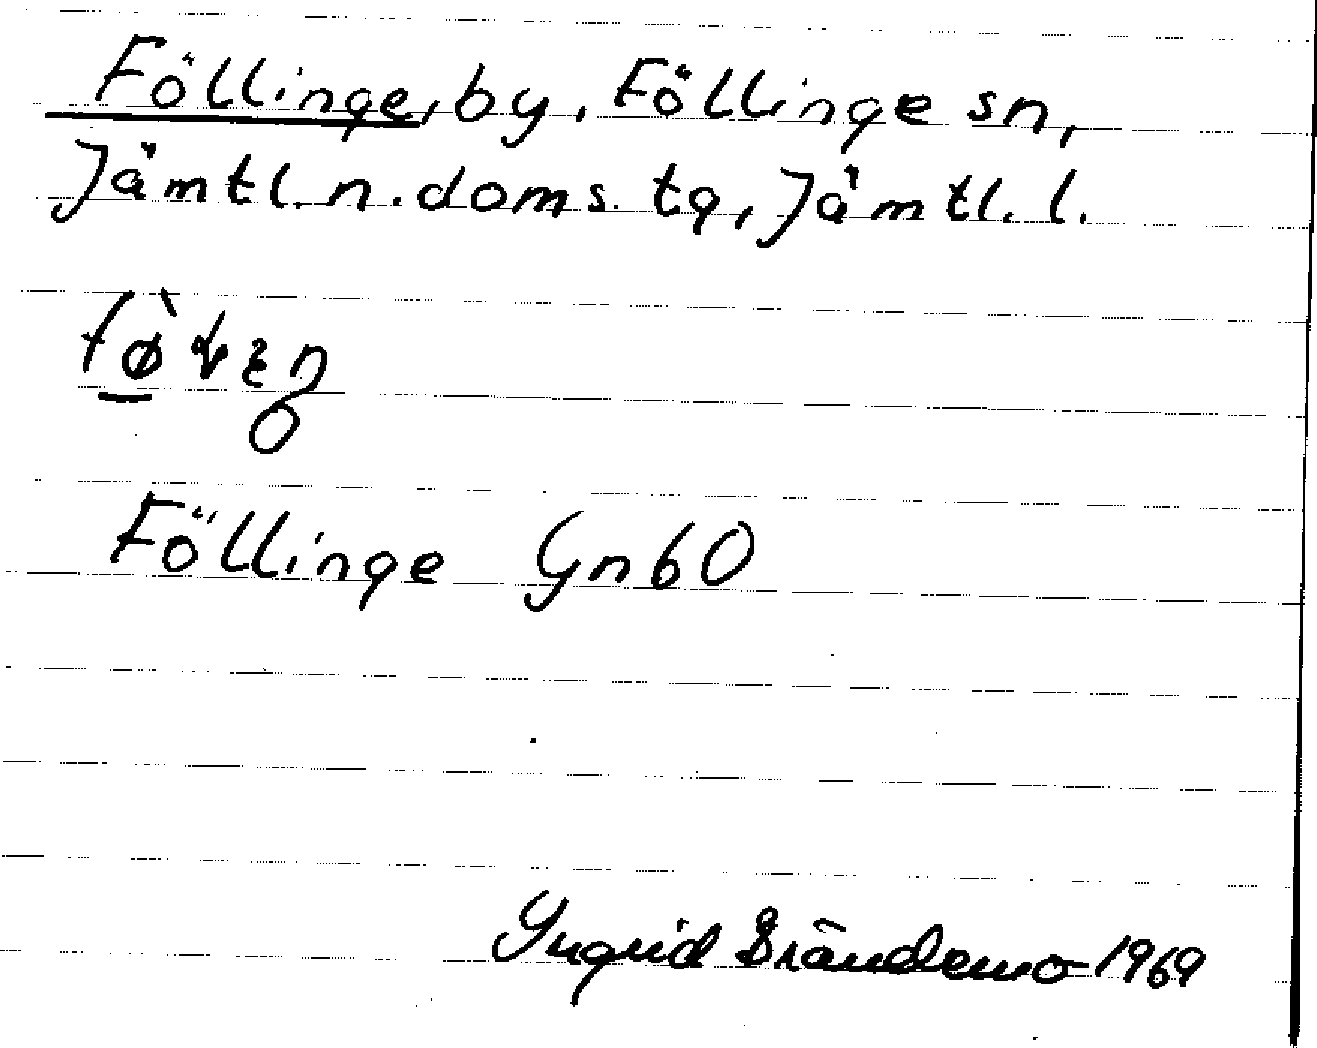 Föllinge, by, Föllinge sn,
Jämtl. n. doms. tg, Jämtl. l.
Föllinge Gn60
Ingrid Brändemo 1969